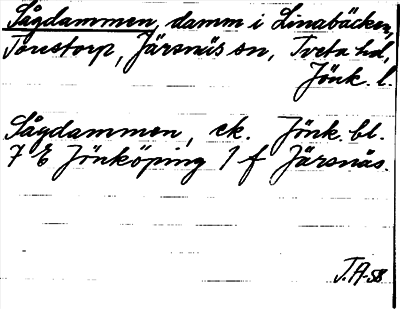 Sågdammen, damm i Linabäcken,
Torestorp, Järsnäs sn, Tveta hd,
Jönk. l.
Sågdammen, ek. Jönk. bl.
7 E Jönköping 1 f Järsnäs.
J.A-58